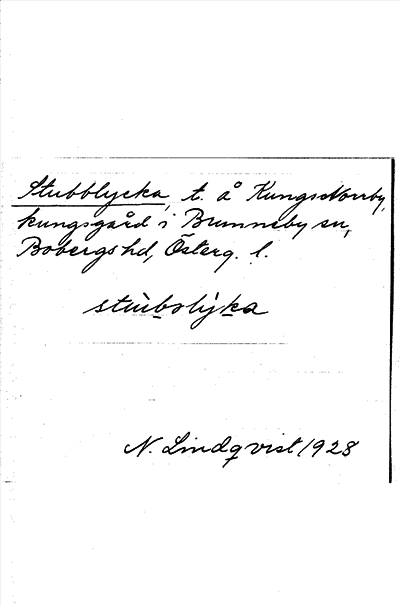 Stubblycka, t. å KungsNorrby,
kungsgård i Brunneby sn,
Bobergs hd, Österg. l.
stùbolýka
N. Lindqvist 1928